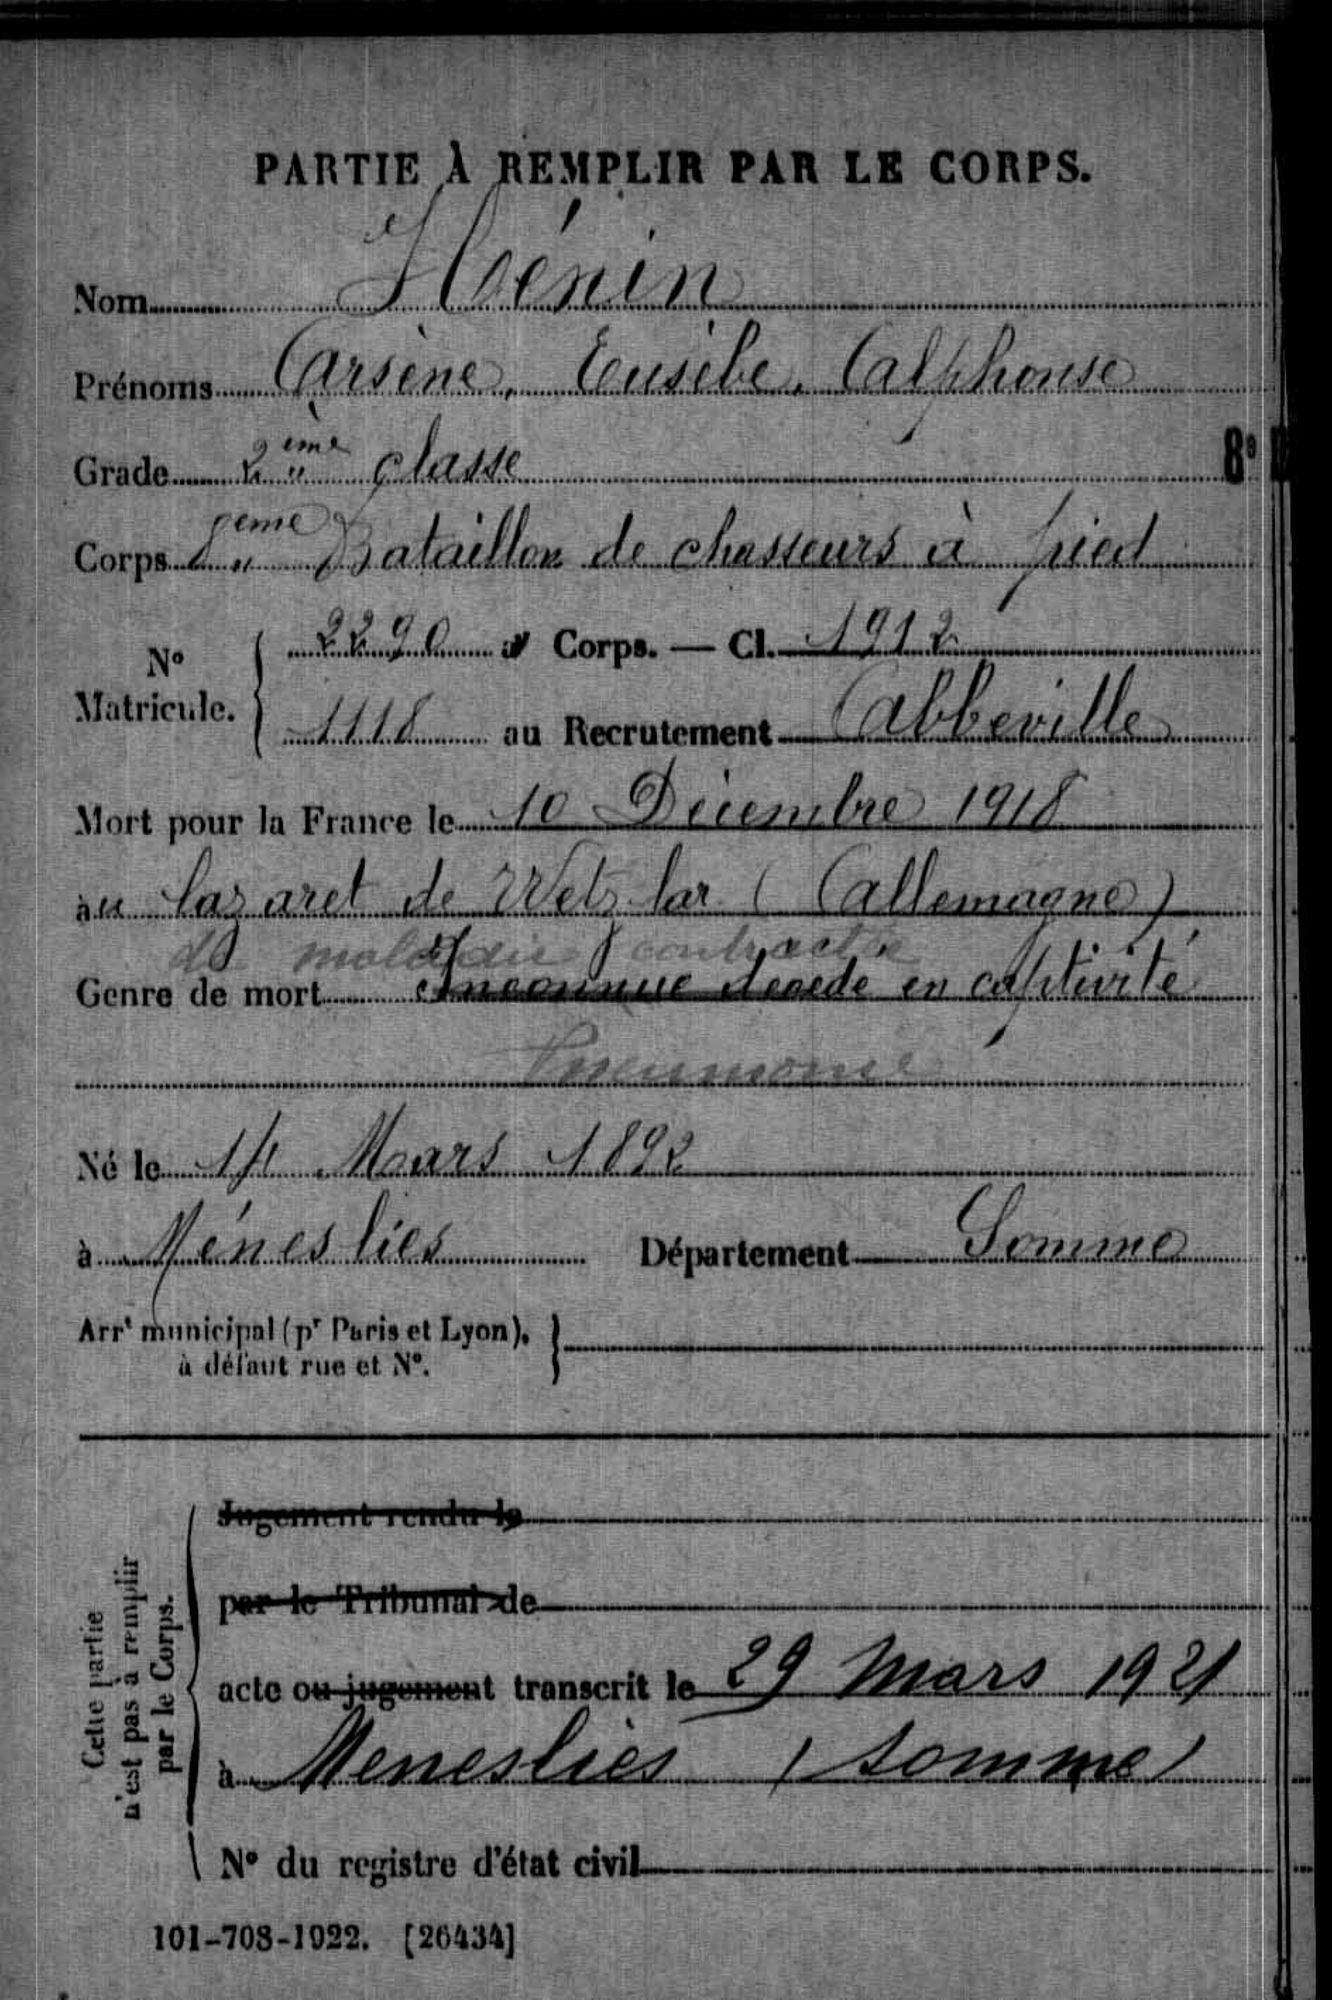 PARTIE À REMPLIR PAR LE CORPS.
Nom Hénin
Prénoms Arsène, Eusèbe, Alphonse
Grade 2ème classe
8e
Corps 8eme Bataillon de chasseurs à pied
No Matricule. 2290 au Corps. — Cl. 1912
1118 au Recrutement Abbeville
Mort pour la France le 10 Décembre 1918
au lazaret de Wetzlar (Allemagne)
de maladie contractée
Genre de mort Inconnue décédé en captivité
Pneumonie
Né le 14 Mars 1892
à Méneslies Département Somme
Arrt municipal (pr Paris et Lyon),
à défaut rue et No.
Jugement rendu le
par le Tribunal de
acte ou jugement transcrit le 29 Mars 1921
à Meneslies (Somme)
No du registre d'état civil
Cette partie
n'est pas à remplir
par le Corps.
101-708-1922. [26434]